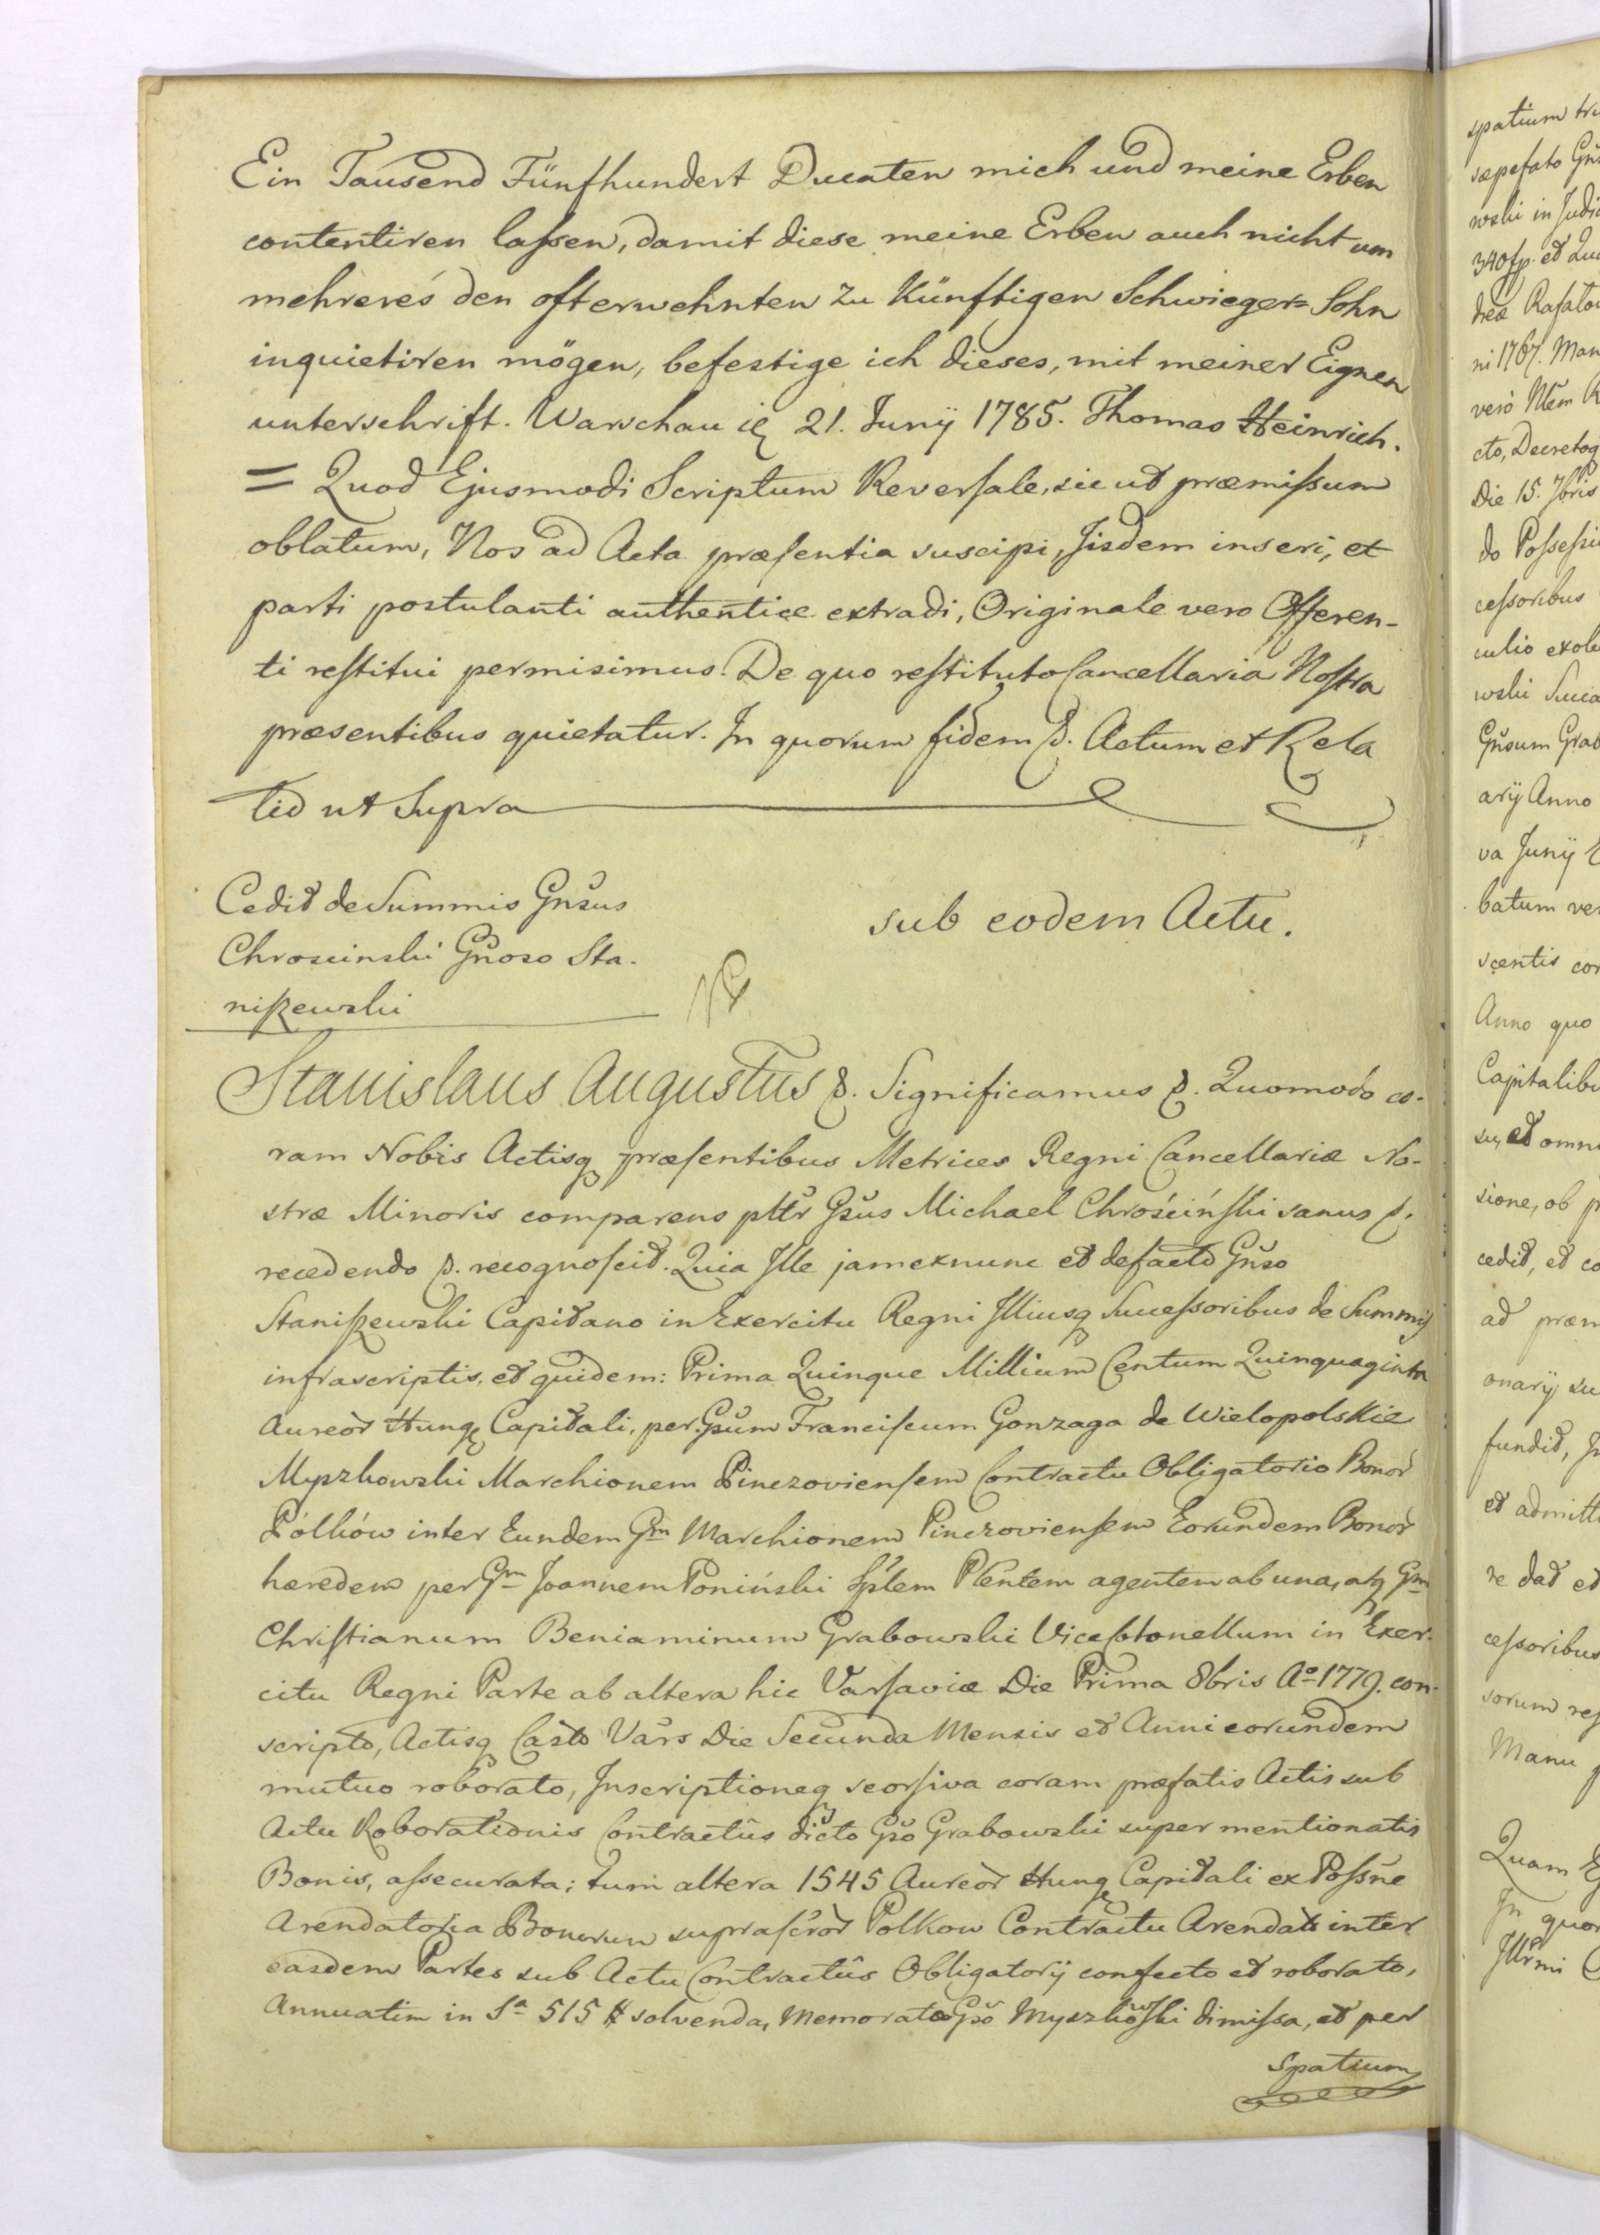 Ein Tausend Fünfhundert Ducaten mich und meine Erben
contentiren laßen, damit diese meine Erben auch nicht um
mehreres den ofterwehnten zu Künftigen Schwieger= Sohn
inquietiren mögen, befestige ich dieses, mit meiner Eignen
unterschrift. Warschau 21. Junÿ 1785. Thomas Heinrich.
= Quod Ejusmodi Scriptum Reversale, sic ut præmissum
oblatum, Nos ad Acta præsentia suscipi, Jisdem inseri, et
parti postulanti authentice extradi, Originale vero Offeren-
ti restitui permisimus. De quo restituto Cancellaria Nostra
præsentibus quietatur. In quorum fidem &. Actum et Rela
tio ut Supra
Cedit de Summis Gnsus
Chroscinski Gnoso Sta-
niszewski
sub eodem Actu.
Stanislaus Augustus &. Significamus &. Quomodo co-
ram Nobis Actisq præsentibus Metrices Regni Cancellariæ No-
stræ Minoris comparens plr Gsus Michael Chrościński sanus &.
recedendo &. recognoscit. Quia Jlle jam exnunc et defacto Gnso
Staniszewski Capitano in Exercitu Regni Jlliusq Successoribus de Summis
infrascriptis, et quidem: Prima Quinque Millium Centum Quinquaginta
Aureor Hung Capitali, per Gsum Franciscum Gonzaga de Wielopolskie
Myszkowski Marchionem Pinczoviensem Contractu Obligatorio Bonor
Pólków inter Eundem Gm Marchionem Pinczoviensem Eorundem Bonor
hæredem per Gm Joannem Poniński Splem Plentem agentem ab una, atq Gm
Christianum Beniaminum Grabowski Vicecolonellum in Exer-
citu Regni Parte ab altera hic Varsaviæ Die Prima 8bris Ao 1779. con-
scripto, Actisq Casto Vars Die Secunda Mensis et Anni eorundem
mutuo roborato, Inscriptioneq seorsiva coram præfatis Actis sub
Actu Roborationis Contractûs dicto Gso Grabowski super mentionatis
Bonis, assecurata; tum altera 1545 Aureor Hung Capitali ex Possne
Arendatoria Bonorum suprascror Polkow Contractu Arendato inter
easdem Partes sub Actu Contractûs Obligatorÿ confecto et roborato,
Annuatim in Sa 515 # solvenda, Memorato Gso Myszkowski dimissa, et per
Spatium
spatium
sæpefato
wski in
340 fp. et
Rafało
ni 1767.
vero Nlem
cto,
Die 15. 7bris
do
cessoribus
wski
Gnsum
arÿ Anno
va Junÿ
batum
scentis
Anno quo
et omn
sione, ob
cedit, et
ad
onarÿ
fundit,
et
re dat et
cessoribus
sorum
Manu
Quam
In
Jllrmi